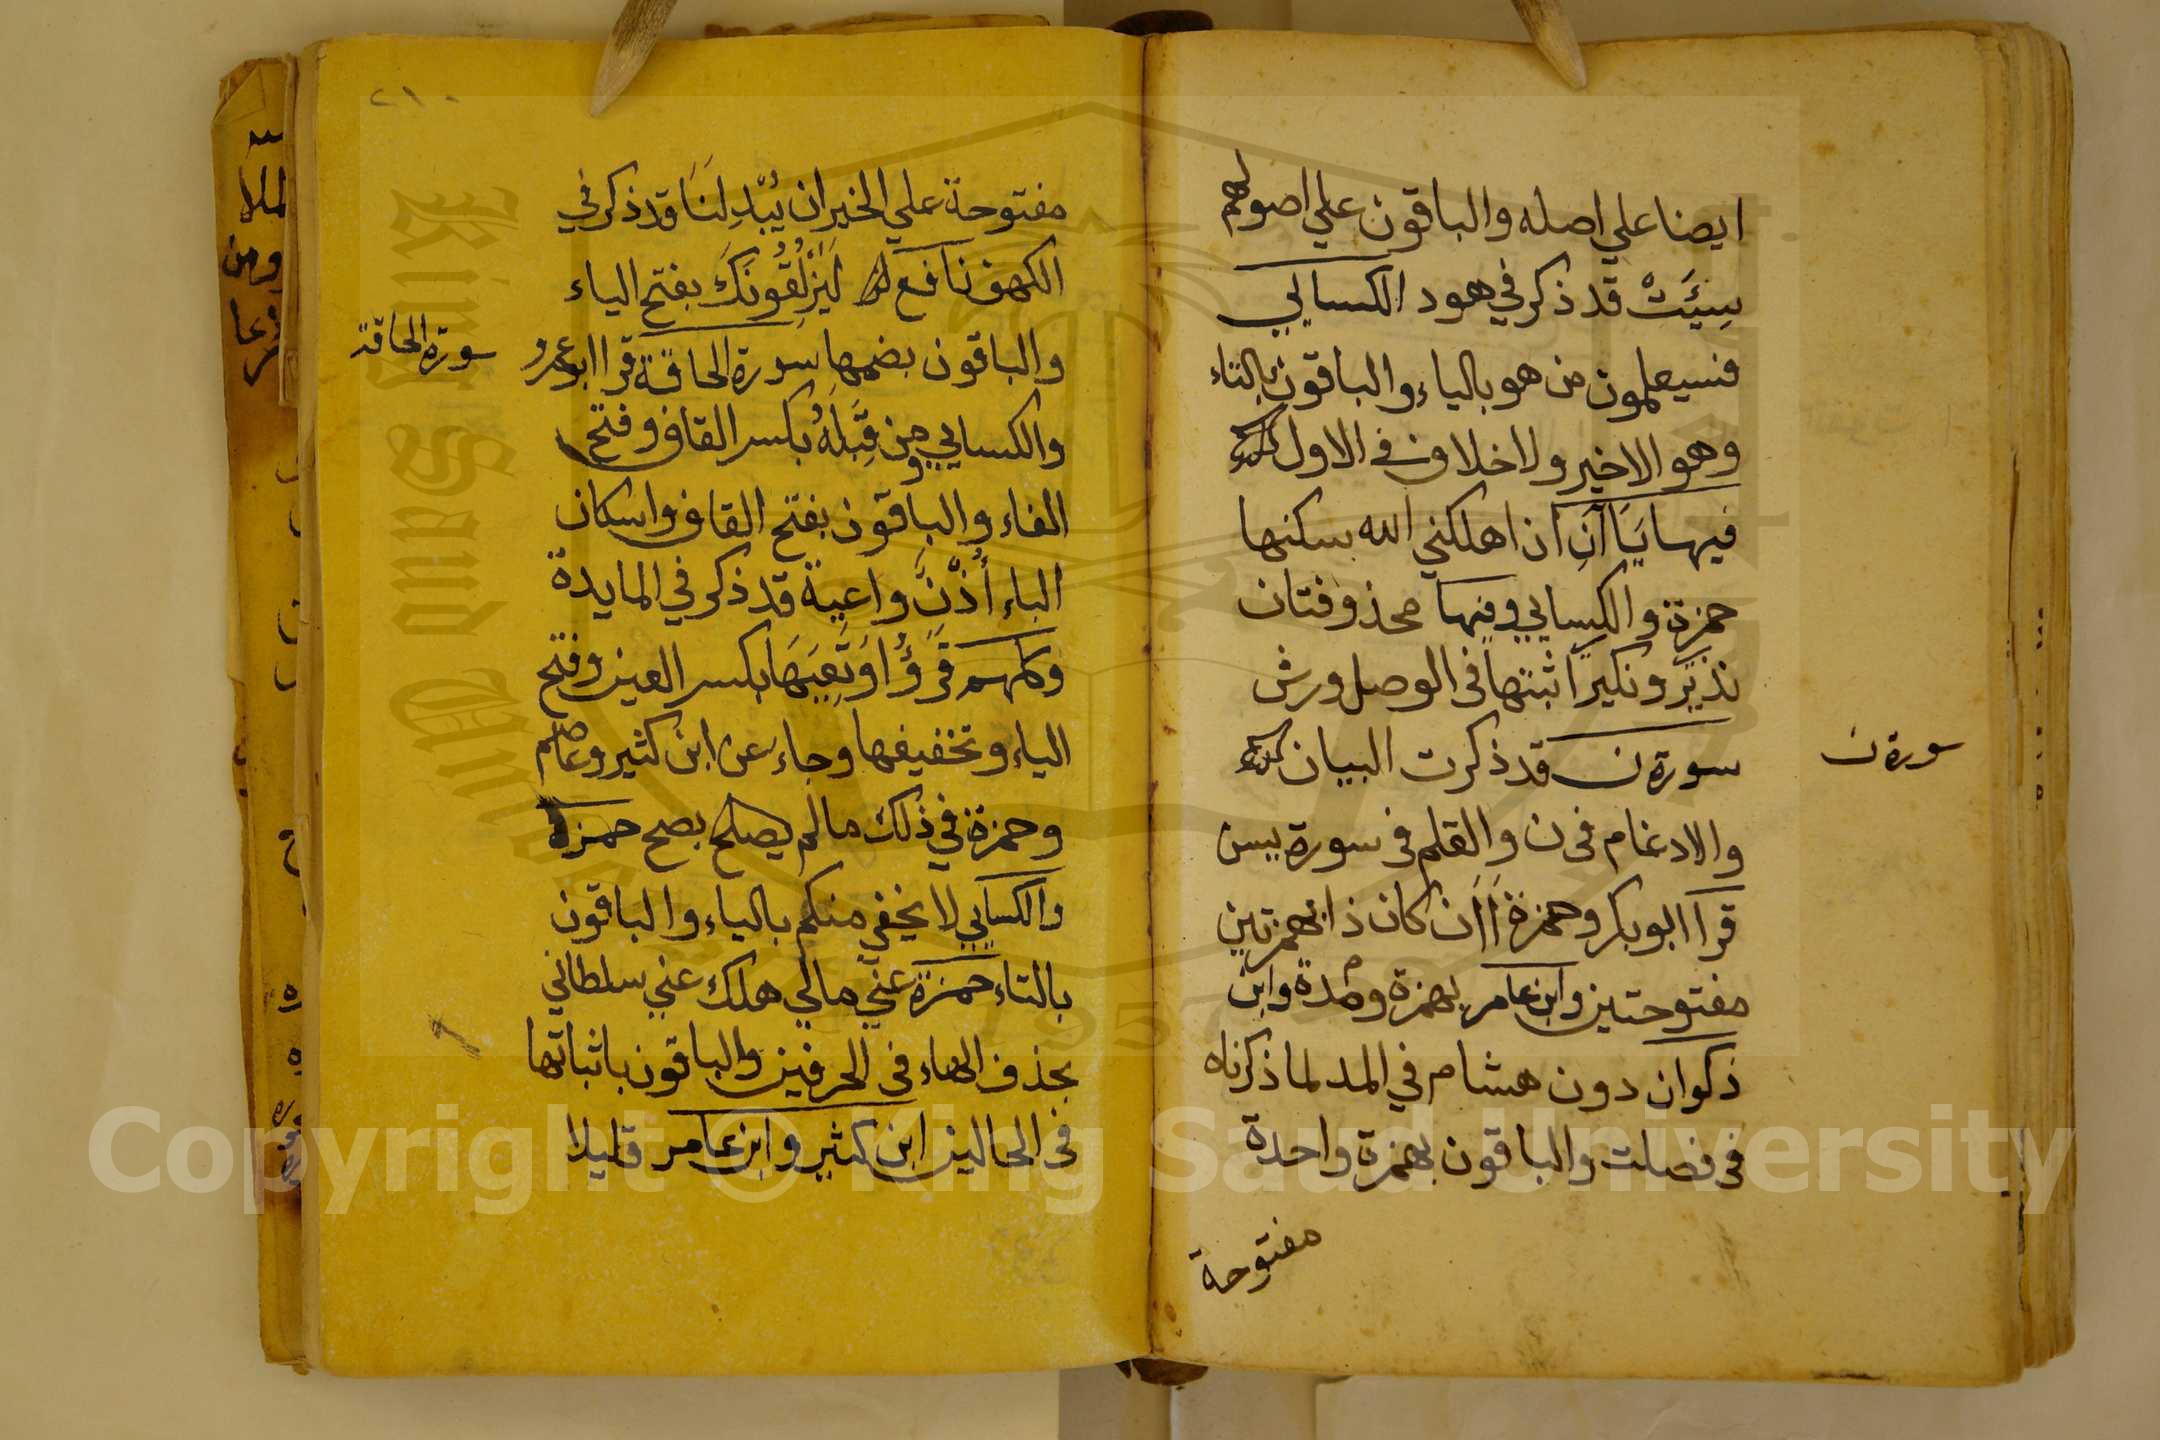 ايضا علي اصله والباقون علي اصولهم
سِيئَتْ قد ذكر في هود الكسايي
فسيعلمون من هو بالياء والباقون بالتاء
وهو الاخير ولا خلاف في الاول
فيها يَاآنِ ان اهلكني الله سكنها
حمزة والكسايي وفيها محذوفتان
نذير ونكير اثبتها في الوصل ورش
سورة ن قد ذكرت البيان
والادغام في ن والقلم في سورة يس
قرا ابو بكر وحمزة أَأَن كان ذا بهمزتين
مفتوحتين وابن عامر بهمزة ومدة وابن
ذكوان دون هشام في المد لما ذكرناه
في فصلت والباقون بهمزة واحدة
مفتوحة
سورة ن
٢١٠
مفتوحة علي الخبر ان يُبَّدِلَنَا قد ذكر في
الكهف نافع لَيَزْلُقُونَكَ بفتح الياء
والباقون بضمها سورة الحاقة قرا ابو عمرو
والكسايي ومن قِبَلَهُ بكسر القاف وفتح
الباء والباقون بفتح القاف واسكان
الباء أُذُنٌ وَاعِيةٌ قد ذكر في المايدة
وكلهم قَرَؤُا وَتَعِيَهَا بكسر العين وفتح
الياء وتخفيفها وجاء عن ابن كثير وعاصم
وحمزة في ذلك مالم يصلح يصح حمزة
والكسايي لا يخفي منكم بالياء والباقون
بالتاء حمزة عني مالي هلك عني سلطاني
بحذف الهاء في الحرفين والباقون باثباتها
في الحالين ابن كثير وابن عامر قليلا
سورة الحاقة
King Saud University
1957
Copyright © King Saud University